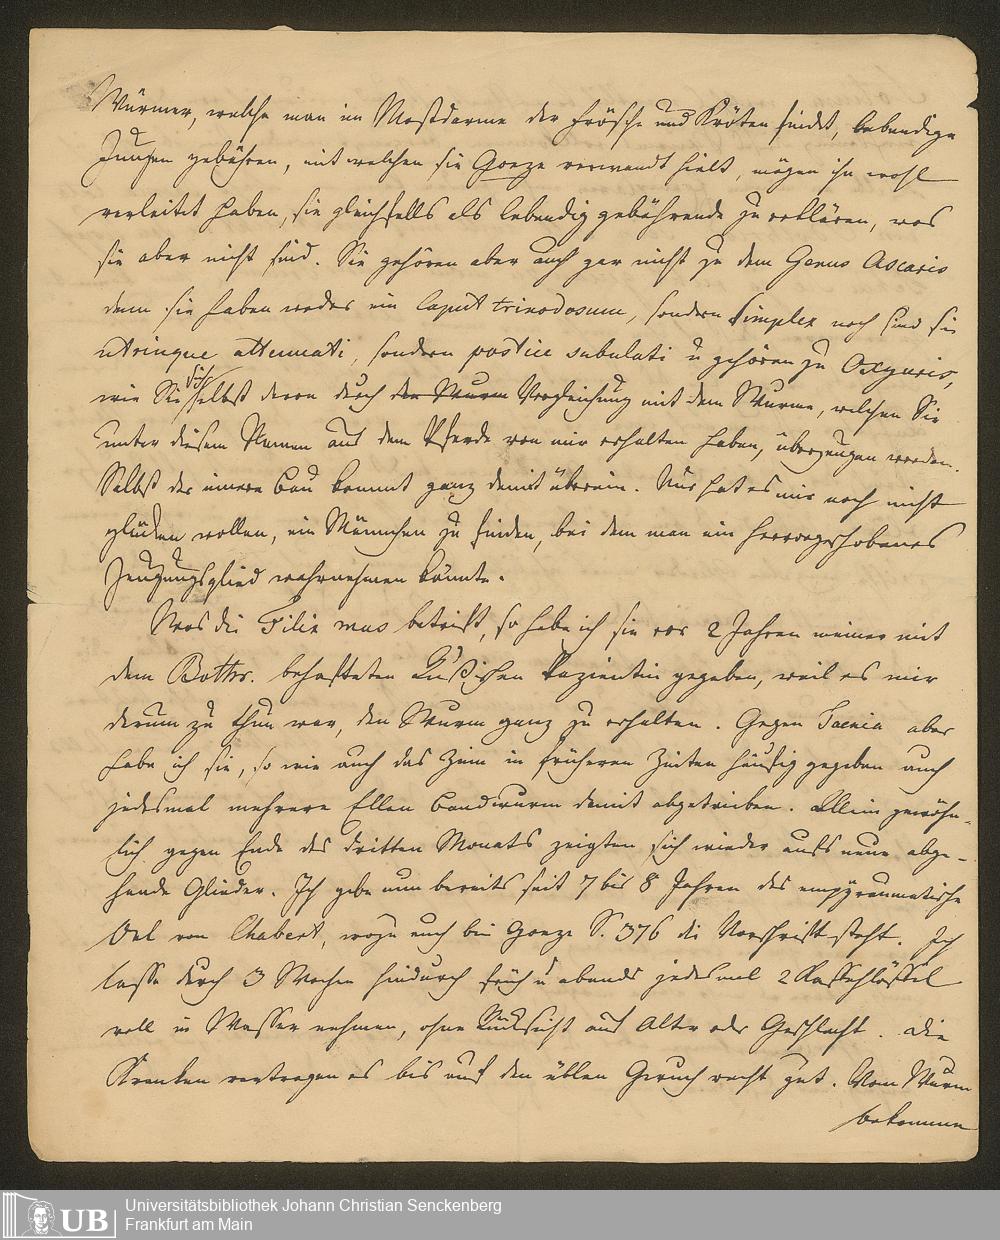 Würmer, welche man im Mastdarme der Frösche und Kröten findet, lebendige
Jungen gebähren, mit welchen sie Goeze verwandt hielt, mögen ihn wohl
verleitet haben, sie gleichfells als lebendig gebährende zu erklären, was
sie aber nicht sind. Sie gehören aber auch gar nicht zu dem Genus Ascaris
denn sie haben weder ein Caput trinodosum, sondern simplex noch sind sie
utrinque attenuati, sondern postice subulati u gehören zu Oxyuris,
wie Sie sich selbst davon durch den Wurm Vergleichung mit dem Wurme, welchen Sie
unter diesem Namen aus dem Pferde von mir erhalten haben, überzeugen werden.
Selbst der innere Bau kommt ganz damit überein. Nur hat es mir noch nicht
glücken wollen, ein Männchen zu finden, bei dem man ein hervorgeschobenes
Zeugungsglied wahrnehmen könnte.
Was die Filix mas betrift, so habe ich sie vor 2 Jahren meiner mit
dem Bothr. behafteten Rußischen Pazientin gegeben, weil es mir
darum zu thun war, den Wurm ganz zu erhalten. Gegen Taenia aber
habe ich sie, so wie auch das Zinn in früheren Zeiten häufig gegeben auch
jedesmal mehrere Ellen Bandwurm damit abgetrieben. Allein gewöhn-
lich gegen Ende des dritten Monats zeigten sich wieder aufs neue abge-
hende Glieder. Ich gebe nun bereits seit 7 bis 8 Jahren das empyreumatische
Oel von Chabert, wozu auch bei Goeze S. 376 die Vorschrift steht. Ich
lasse durch 3 Wochen hindurch früh u abends jedesmal 2 Kaffehlöffel
voll in Wasser nehmen, ohne Rüksicht auf Alter oder Geschlecht. Die
Kranken vertragen es bis auf den üblen Geruch recht gut. Vom Wurm
bekommen
Universitätsbibliothek Johann Christian Senckenberg
Frankfurt am Main
UB